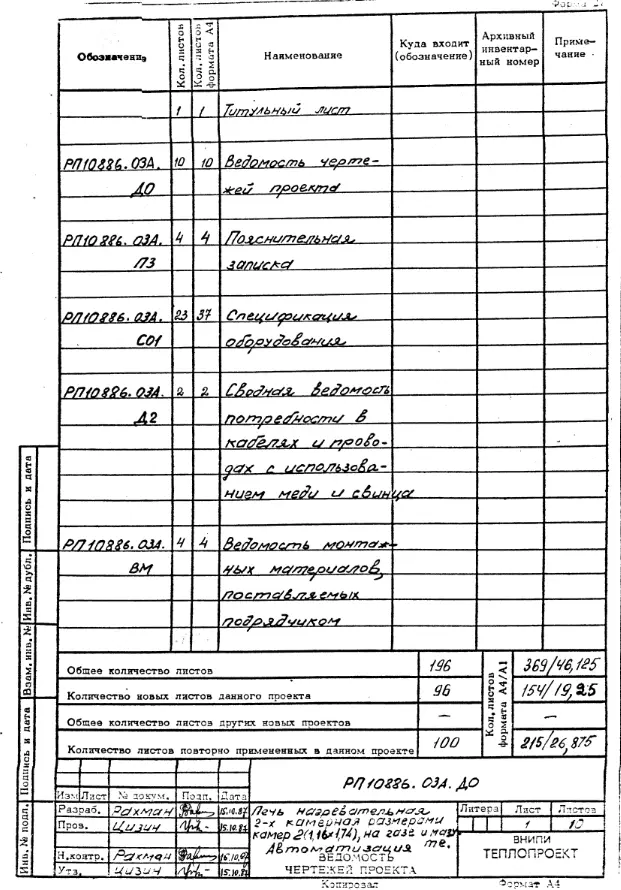 Форма 27
Обозначение
Кол. листов
Кол. листов формата А4
Наименование
Куда входит (обозначение)
Архивный инвентарный номер
Приме-
чание
1 1 Титульный лист
РП10886.03А. 10 10 Ведомость черте-
ДО жей проекта
РП10886.03А. 4 4 Пояснительная
ПЗ записка
РП10886.03А. 23 37 Спецификация
СО1 оборудования
РП10886.03А. 2 2 Сводная ведомость
Д2 потребности в
кабелях и прово-
дах с использова-
нием меди и свинца
РП10886.03А. 4 4 Ведомость монтаж-
ВМ ных материалов,
поставляемых
подрядчиком
Общее количество листов 196 369/46,125
Количество новых листов данного проекта 96 154/19,25
Общее количество листов других новых проектов — —
Количество листов повторно примененных в данном проекте 100 215/26,875
Кол. листов формата А4/А1
Подпись и дата
Инв. № дубл.
Взам. инв. №
Подпись и дата
Инв. № подл.
РП10886.03А.ДО
Изм Лист № докум. Подп. Дата
Разраб. Рахман 15.10.87
Пров. Цизин 15.10.87
Н.контр. Рахман 15.10.87
Утв. Цизин 15.10.87
Печь нагревательная
2-х камерная размерами
камер 2(1,16х1,74), на газе и мазу-
те.
Автоматизация
ВЕДОМОСТЬ
ЧЕРТЕЖЕЙ ПРОЕКТА
Литера Лист Листов
1 10
ВНИПИ
ТЕПЛОПРОЕКТ
Копировал Формат А4